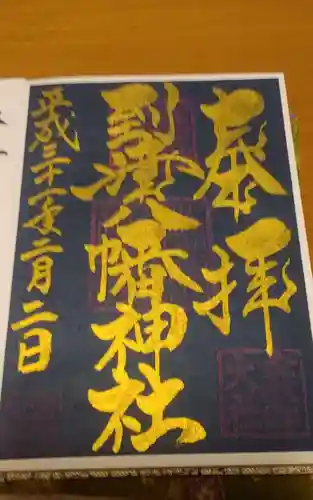 奉拝
到津八幡神社
平成三十一年二月二日